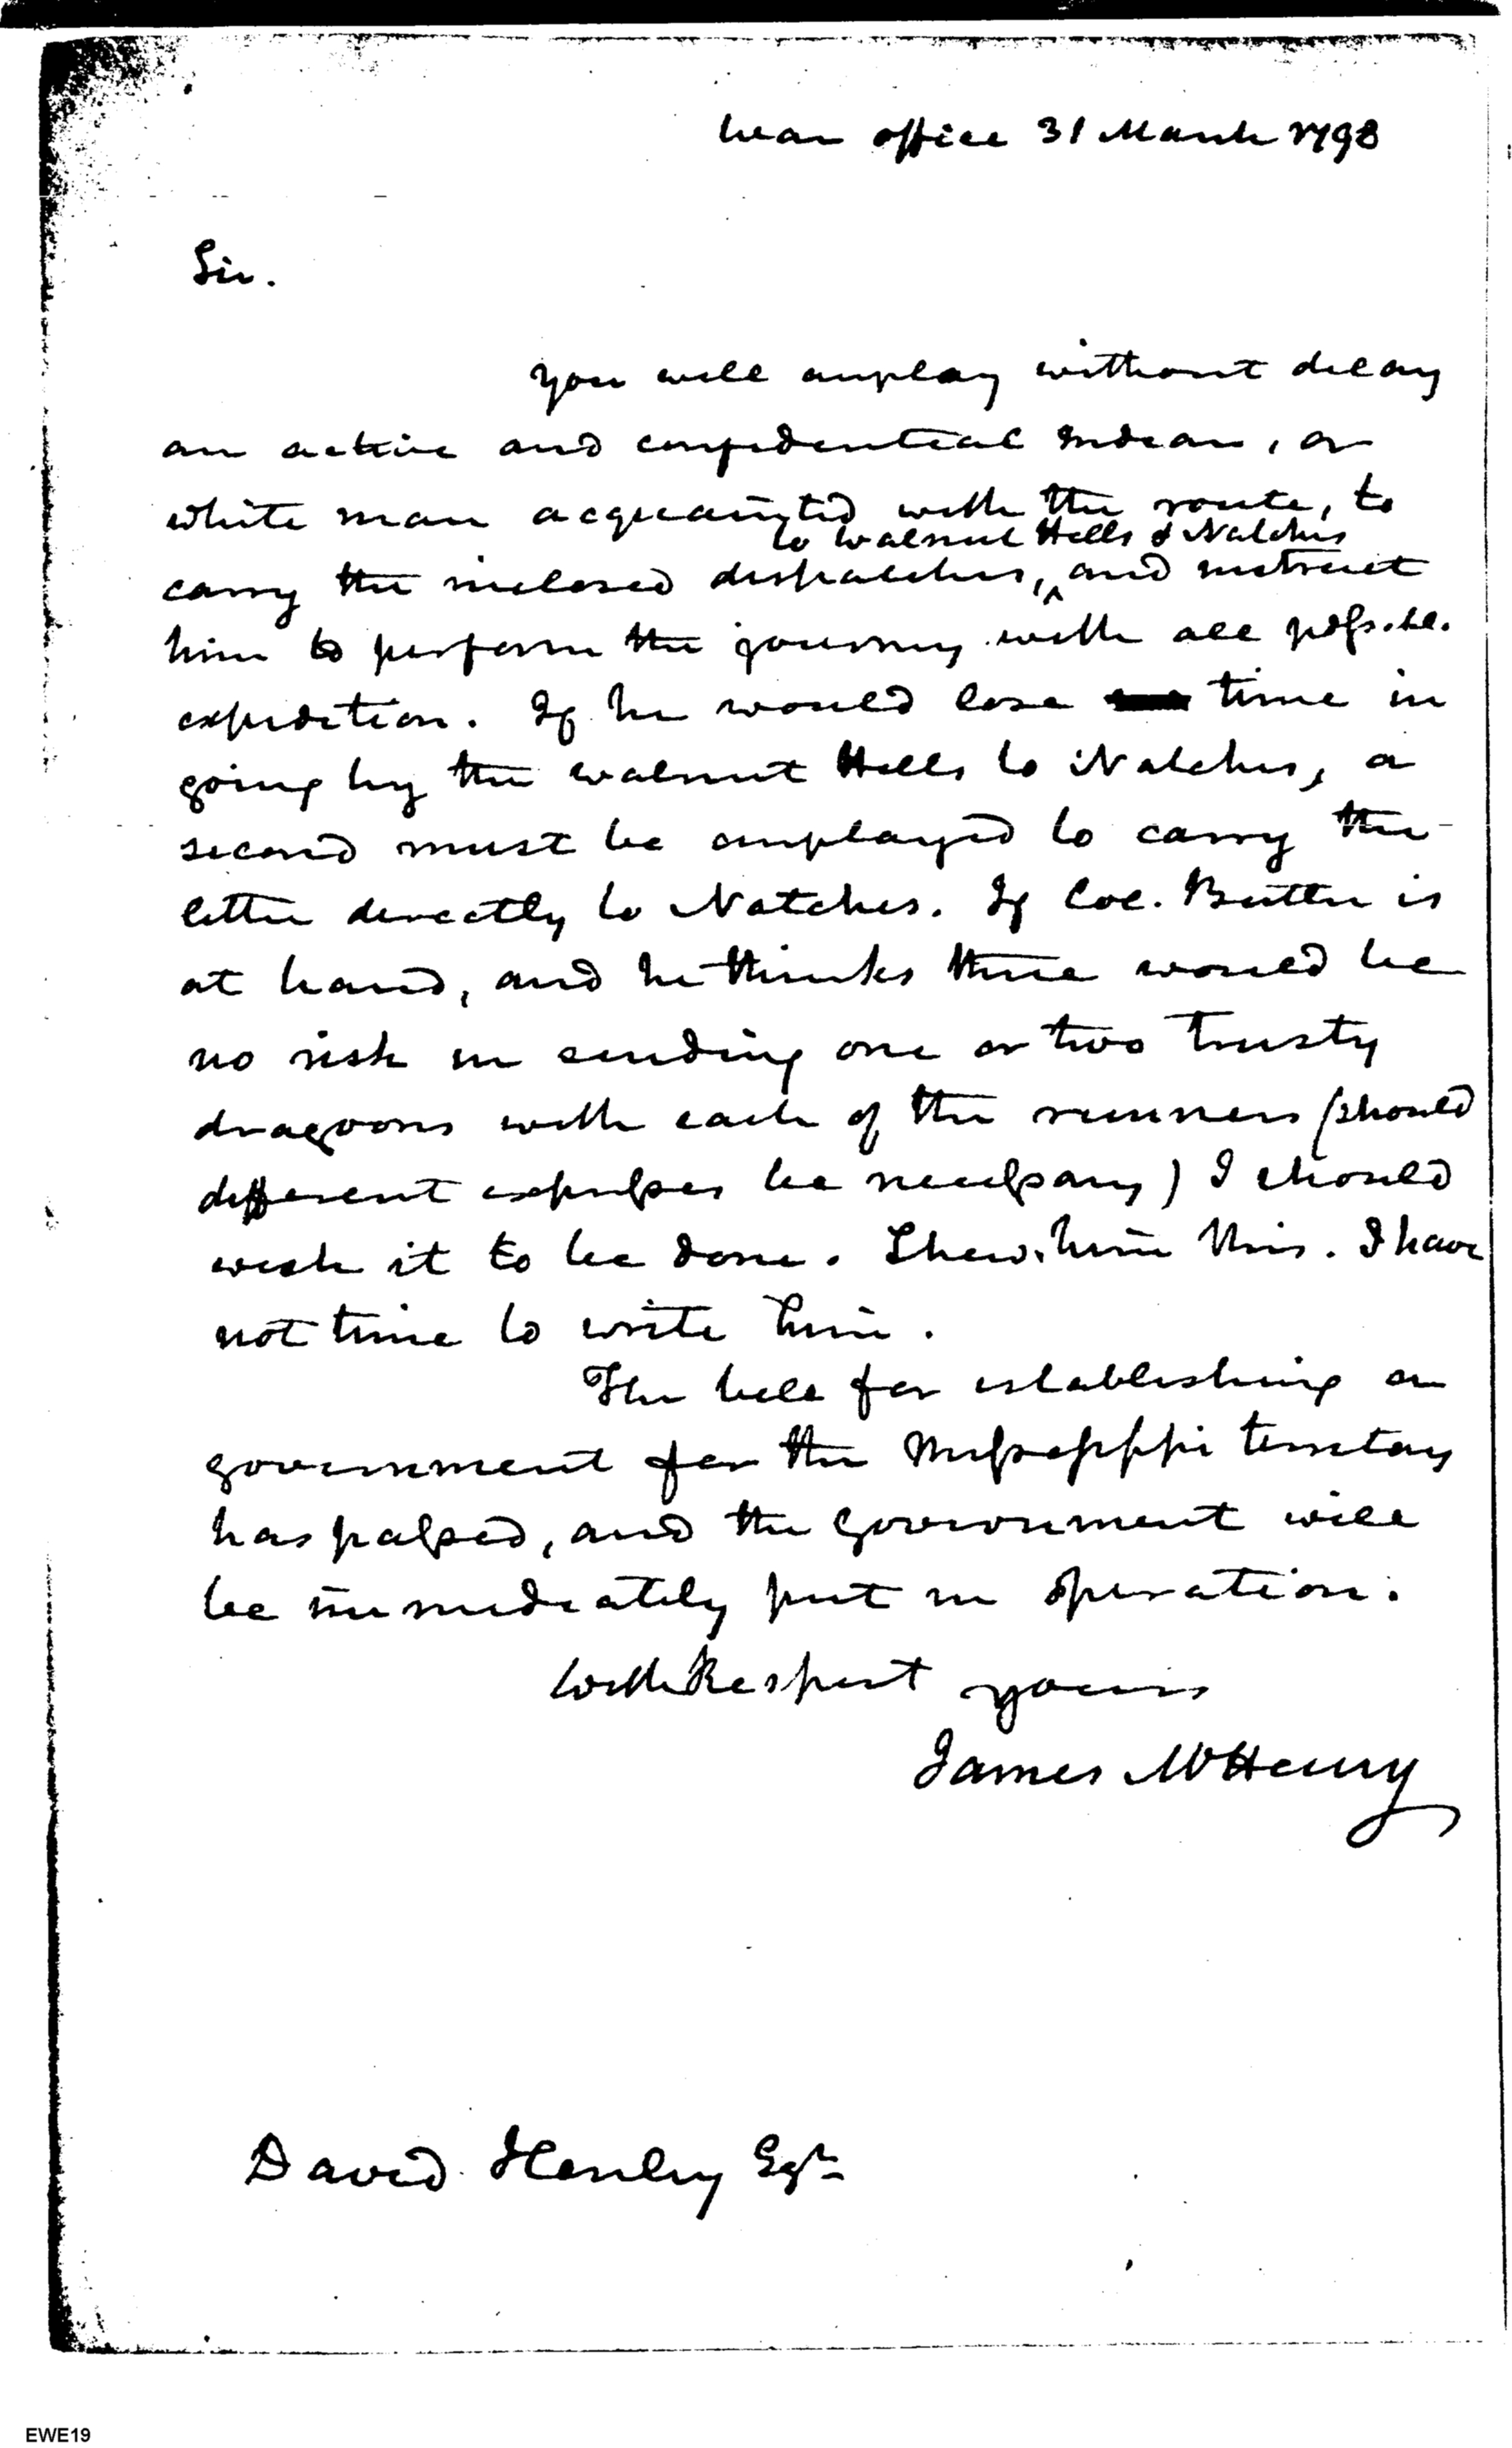 War office 31 March 1798
Sir.
you will employ without delay
an active and confidential Indian, or
white man acquainted with the route, to
to Walnut Hills & Natches
carry the inclosed dispatches, ^ and instruct
him to perform the journey with all possible
expedition. If he would lose time in
going by the Walnut Hills to Natches, a
second must be employed to carry the
letter directly to Natches. If Col. Butler is
at hand, and he thinks there would be
no risk in sending one or two trusty
dragoons with each of the runners (should
different expresses be necessary) I should
wish it to be done. Shew him this. I have
not time to write him.
The bill for establishing a
government for the Missisippi territory
has passed, and the government will
be immediately put in operation.
With Respect yours
James McHenry
David Henley Esqr
EWE19